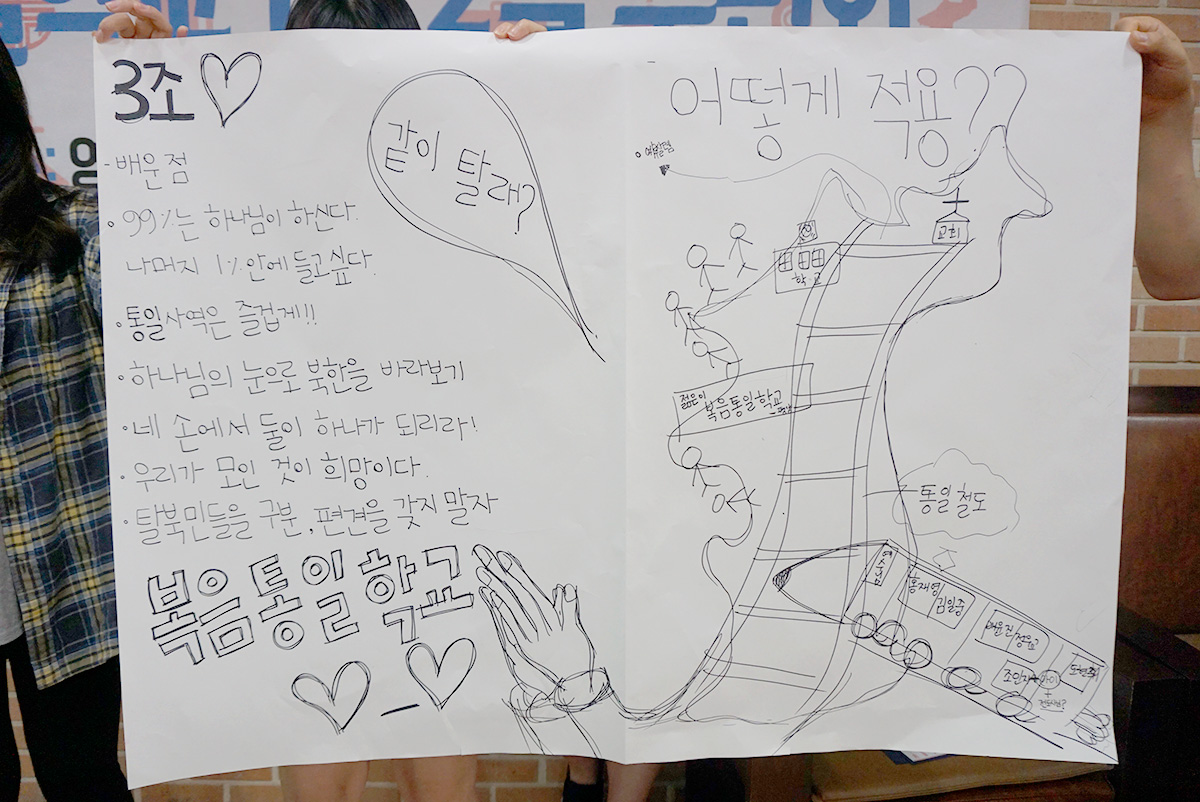 3조
- 배운 점
• 99%는 하나님이 하신다.
나머지 1%안에 들고싶다.
• 통일사역은 즐겁게!!
• 하나님의 눈으로 북한을 바라보기
• 네 손에서 둘이 하나가 되리라!
• 우리가 모인 것이 희망이다.
• 탈북민들을 구분, 편견을 갖지 말자
복음통일학교
같이 탈래?
어떻게 적용??
교회
학교
젊은이
복음통일학교
통일 철도
예수님
홍재영
김일중
배운진
조인자